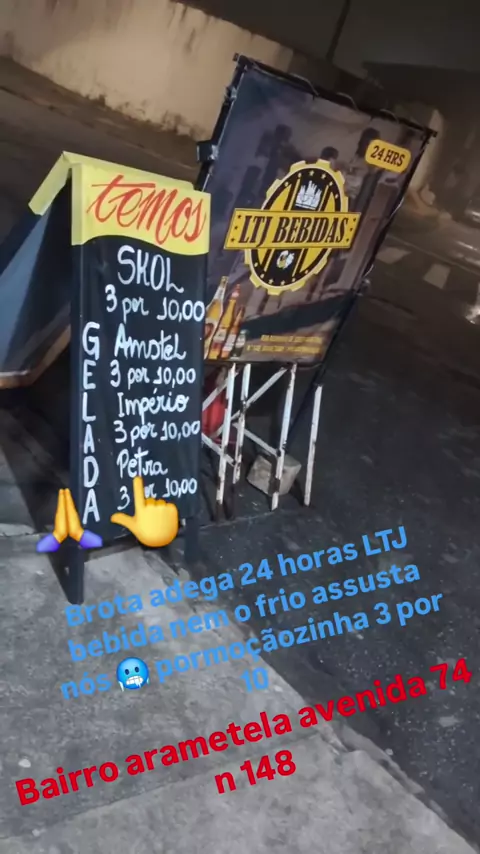 temos
SKOL
3 por 10,00
Amstel
3 por 10,00
Império
3 por 10,00
Petra
3 por 10,00
GELADA
24 HRS
LTJ BEBIDAS
Brota adega 24 horas LTJ
bebida nem o frio assusta
nós 🥶 pormoçãozinha 3 por
10
Bairro arametela avenida 74
n 148